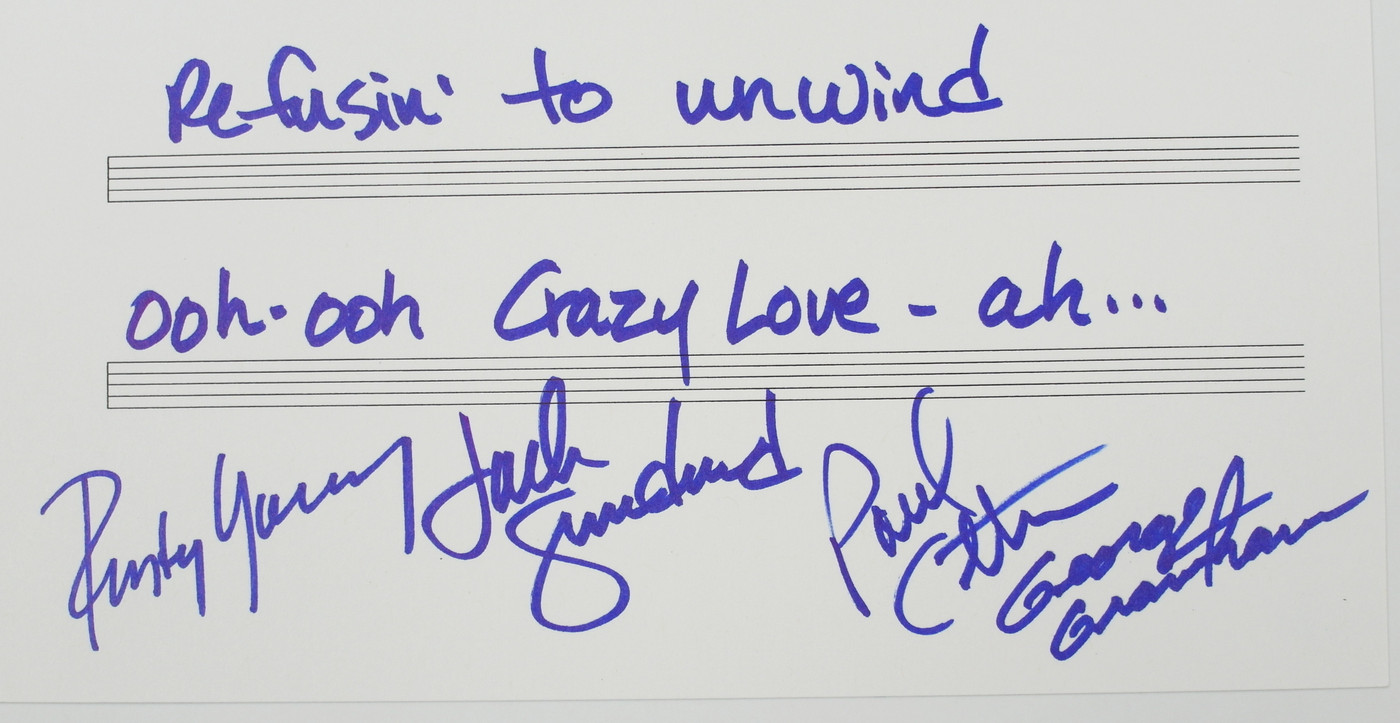 Refusin' to unwind
ooh-ooh Crazy Love - ah...
Rusty Young Jack Sundrud Paul Cotton George Grantham